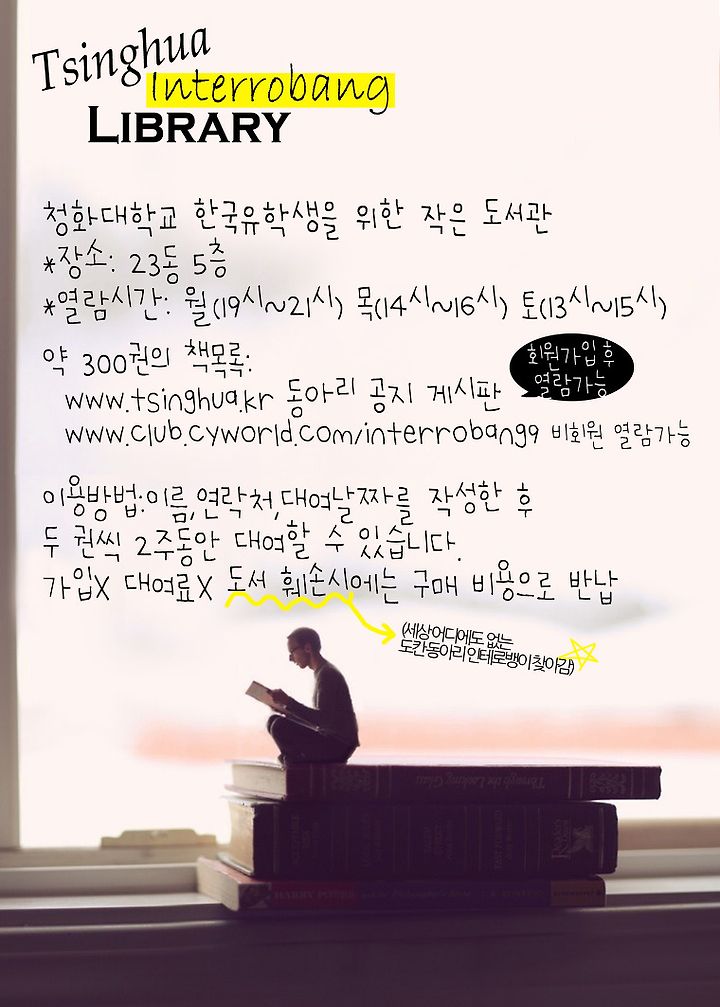 Tsinghua
Interrobang
LIBRARY
청화대학교 한국유학생을 위한 작은 도서관
*장소: 23동 5층
*열람시간: 월(19시~21시) 목(14시~16시) 토(13시~15시)
약 300권의 책목록:
회원가입 후
열람가능
www.tsinghua.kr 동아리 공지 게시판
www.club.cyworld.com/interrobang9 비회원 열람가능
이용방법:이름,연락처,대여날짜를 작성한 후
두 권씩 2주동안 대여할 수 있습니다.
가입X 대여료X 도서 훼손시에는 구매 비용으로 반납
(세상어디에도 없는
도칸동아리 인테로뱅이 찾아감)
Through the Looking Glass
Reader's Digest
HARRY POTTER